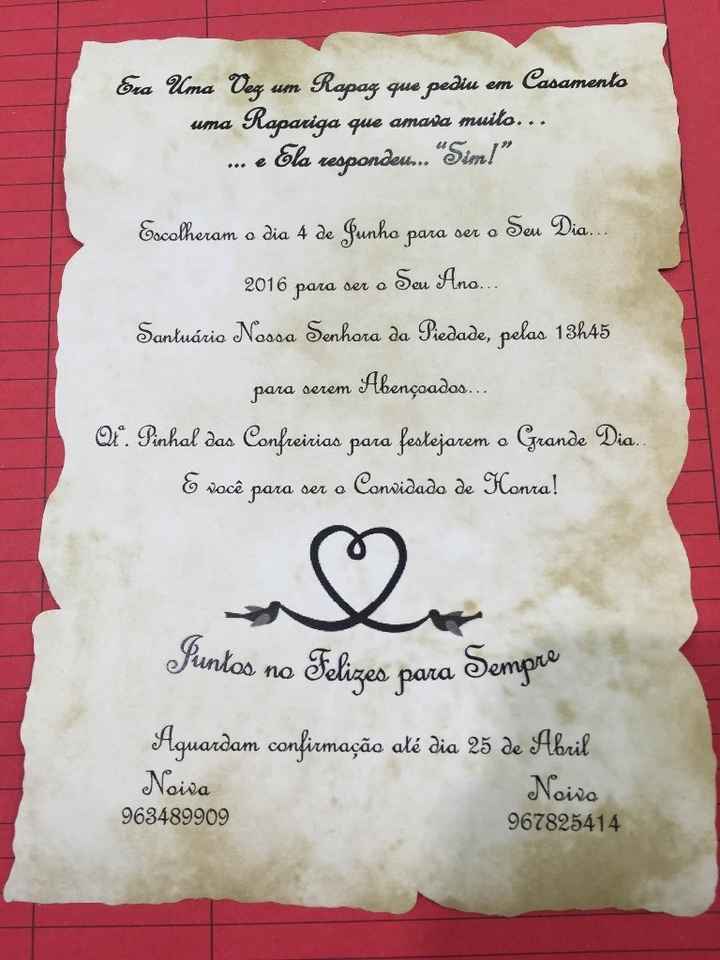 Era Uma Vez um Rapaz que pediu em Casamento
uma Rapariga que amava muito...
... e Ela respondeu... "Sim!"
Escolheram o dia 4 de Junho para ser o Seu Dia...
2016 para ser o Seu Ano...
Santuário Nossa Senhora da Piedade, pelas 13h45
para serem Abençoados...
Qtª. Pinhal das Confreirias para festejarem o Grande Dia..
E você para ser o Convidado de Honra!
Juntos no Felizes para Sempre
Aguardam confirmação até dia 25 de Abril
Noiva Noivo
963489909 967825414